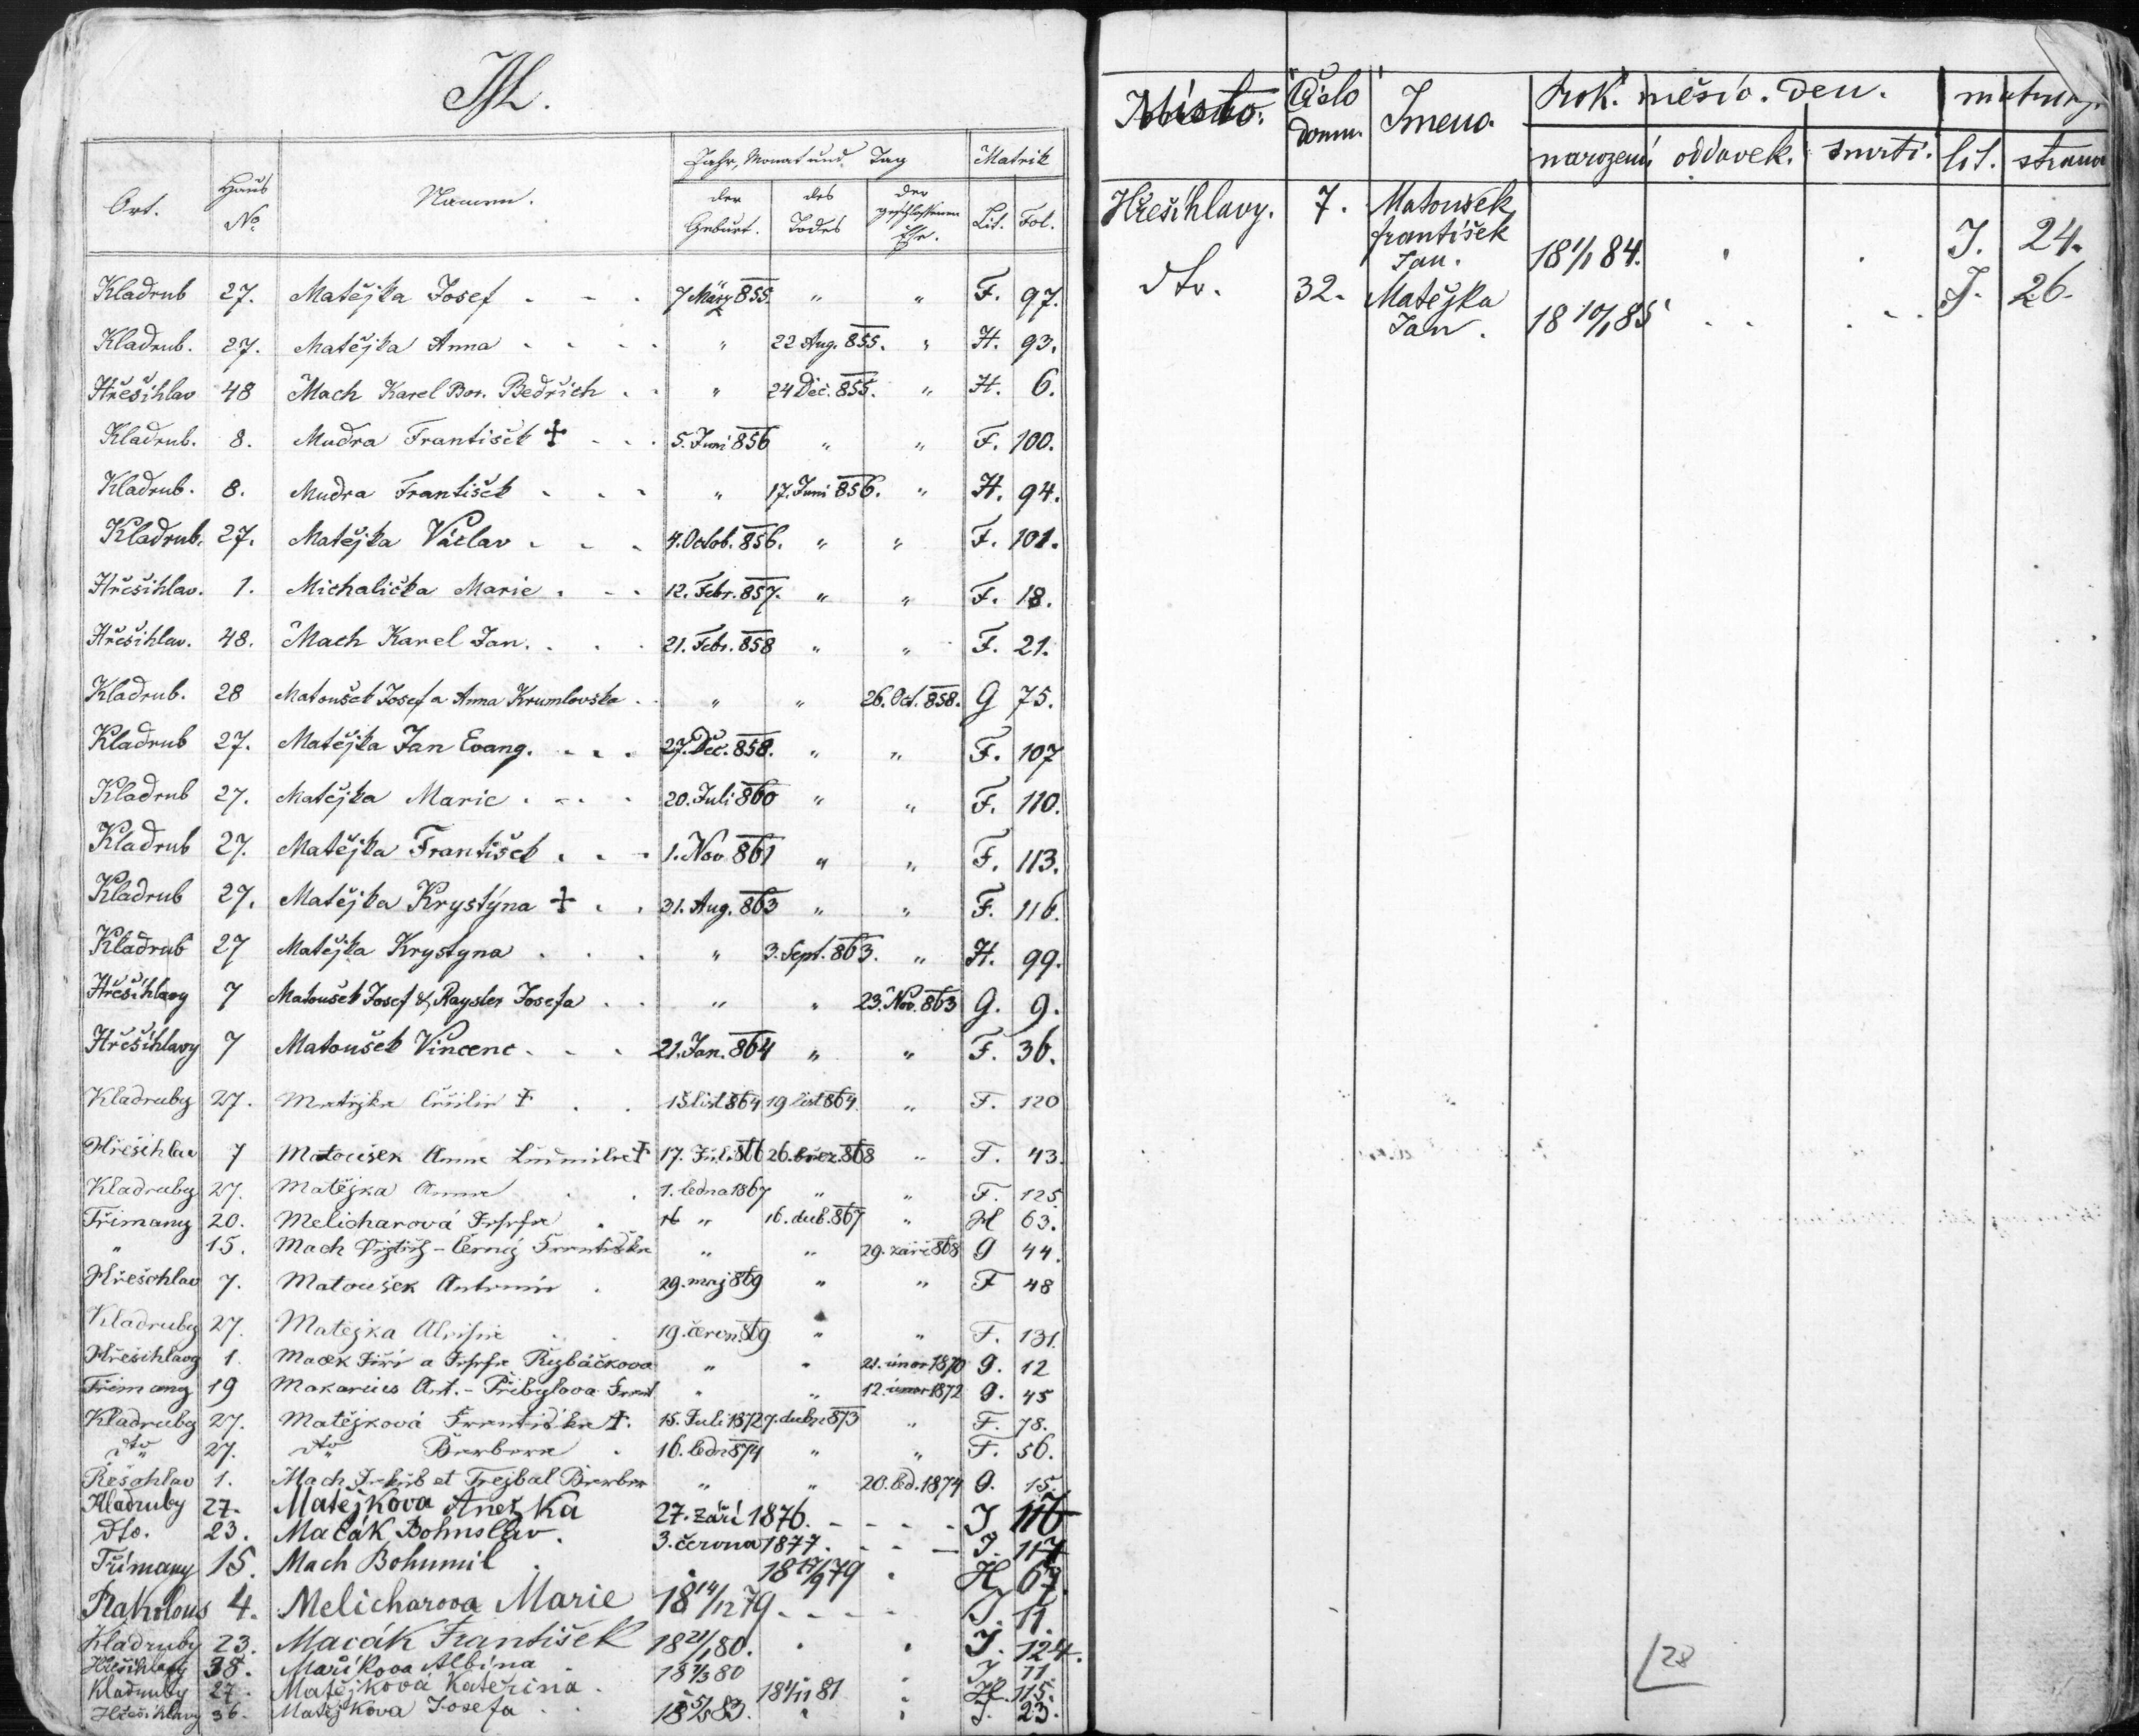 M.
Ort. Haus No. Namen. Jahr, Monat und Tag Matrik
der Geburt. des Todes der geschlossenen Ehe. Lit. Fol.
Kladrub 27. Matějka Josef . - . 7 März 855. " " F. 97.
Kladrub. 27. Matějka Anna . . . . " 22 Aug. 855. " H. 93.
Hřešihlav 48 Mach Karel Bor. Bedřich . . " 24 Dec. 855. " H. 6.
Kladrub. 8. Mudra František ✝ . . . 5. Juni 856 " " F. 100.
Kladrub. 8. Mudra František . . . " 17. Juni 856. " H. 94.
Kladrub. 27. Matějka Václav . . . 4. Octob. 856. " " F. 101.
Hřešihlav. 1. Michalička Marie . . . 12. Febr. 857. " " F. 18.
Hřešihlav. 48. Mach Karel Jan. . . . 21. Febr. 858 " " F. 21.
Kladrub. 28 Matoušek Josef a Anna Krumlovska . . " " 26. Oct. 858. G 75.
Kladrub 27. Matějka Jan Evang. . . . 27. Dec. 858. " " F. 107
Kladrub 27. Matějka Marie . . . . 20. Juli 860 " " F. 110.
Kladrub 27. Matějka František . . . 1. Nov 861 " " F. 113.
Kladrub 27. Matějka Krystýna ✝ . . 31. Aug. 863 " " F. 116.
Kladrub 27 Matějka Krystyna . . . " 3. Sept. 863. " H. 99.
Hřešíhlavy 7 Matoušek Josef & Raysler Josefa . . " " 23. Nov. 863 G. 9.
Hřešíhlavy 7 Matoušek Vincenc . . . 21. Jan. 864 " " F. 36.
Kladruby 27. Matějka ✝ . . 15 list 864 19 list 864. " F. 120
Hřešihlav 7 Matoušek Anna Ludmila ✝ 17. 866 26. břez. 868 " F. 43.
Kladruby 27. Matějka Anna . . 1. ledna 1867 " " F. 125
Třimany 20. Melicharová Josefa . 16 " 16. dub. 867 " H 63.
" 15. Mach - Černý Františka " " 29. září 868 G 44.
Hřešohlav 7. Matoušek Antonín . 29. maj 869 " " F 48
Kladruby 27. Matějka Aloisie . . 19. červn. 869 " " F. 131.
Hřešihlavy 1. Macek Jiří a Josefa Rybáčkova " " 21. únor 1870 G. 12
Třimany 19 Makarius Ant. - Přibylova Frant " " 12. únor 1872 G. 45
Kladruby 27. Matějková Františka ✝. 15. Juli 1872 7. dubn 873 " F. 78.
dto 27. dto Barbora . 16. ledn 874 " " F. 56.
Řešohlav 1. Mach Jakub et Trejbal Barbor " " 20. led. 1874 G. 15.
Kladruby 27. Matějkova Anežka 27. září 1876. - - - - J 116
dto. 23. Macák Bohuslav . 3. června 1877. - - - J. 117
Třímany 15. Mach Bohumil . . 18 17/9 79 . H 67.
Rakolous 4. Melicharova Marie 18 14/12 79 - - - - J. 11.
Kladruby 23. Macák František 18 21/1 80. . . J. 124.
Hřešihlavy 38. Maříkova Albína . 18 7/3 80 . J. 11.
Kladruby 27. Matějková Kateřina . . 18 4/11 81 . H. 115.
Hřešihlavy 36. Matějkova Josefa . . 18 5/5 83. . . J. 23.
Místo. Číslo domu. Jmeno. Rok. měsíc. den. matriky.
narození oddavek. smrti. lit. strana
Hřešíhlavy. 7. Matoušek
františek
Jan. 18 1/1 84. . . J. 24.
dto. 32. Matějka J. 26.
Jan . 18 10/1 85 . . . . .
28